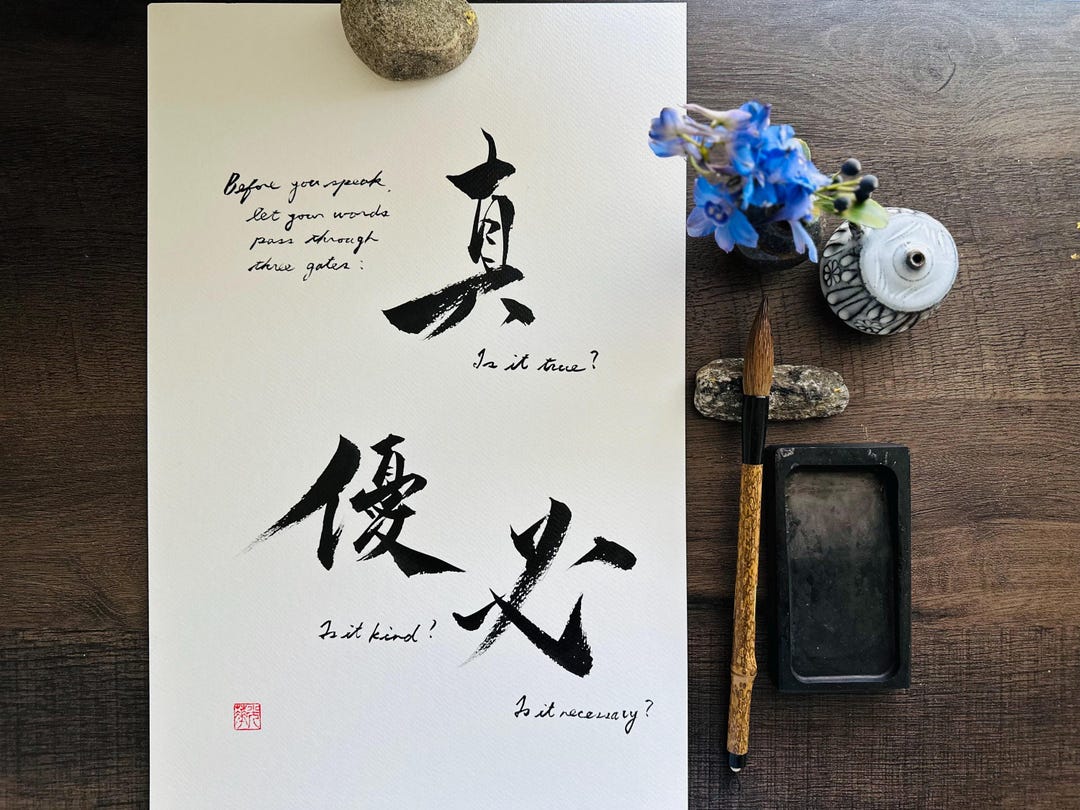 Before you speak,
let your words
pass through
three gates:
真
Is it true?
優
Is it kind?
必
Is it necessary?